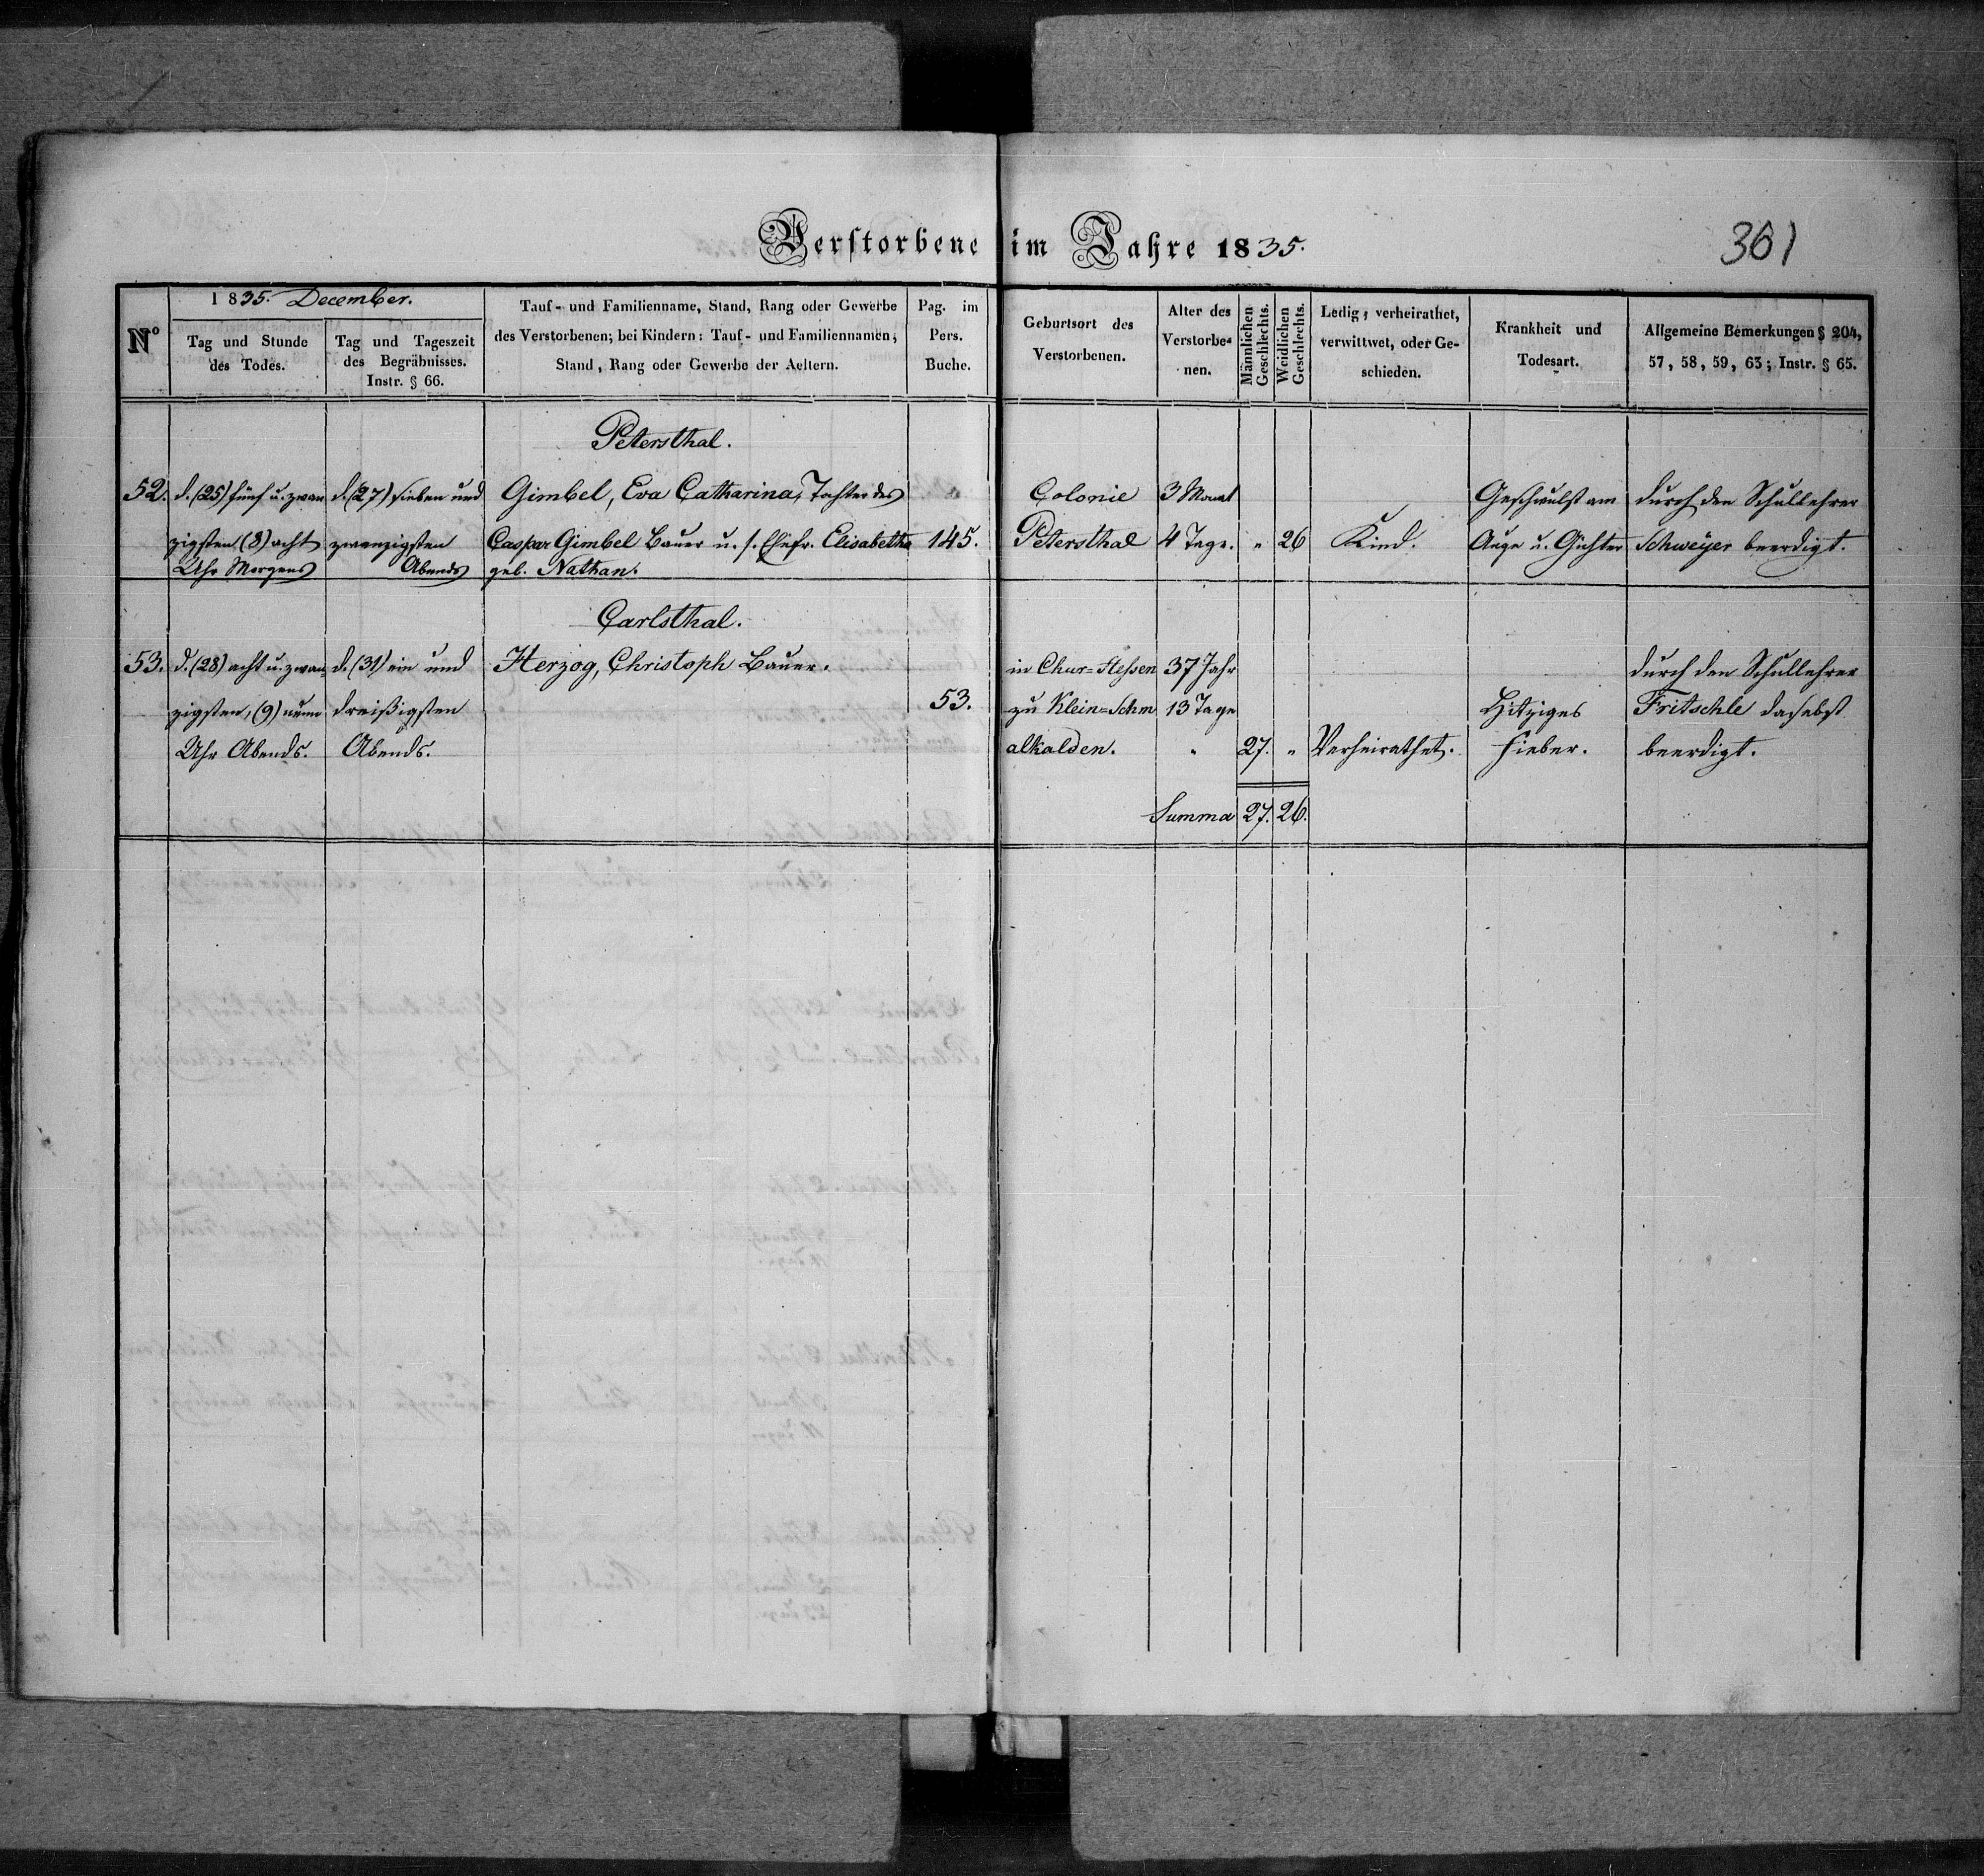 Verstorbene im Jahre 1835.
361
Nº
1835. December.
Tag und Stunde
des Todes.
Tag und Tageszeit
des Begräbnisses.
Instr. § 66.
Tauf- und Familienname, Stand, Rang oder Gewerbe
des Verstorbenen; bei Kindern: Tauf- und Familiennamen,
Stand, Rang oder Gewerbe der Aeltern.
Pag. im
Pers.
Buche.
Geburtsort des
Verstorbenen.
Alter des
Verstorbe-
nen.
Männlichen
Geschlechts.
Weidlichen
Geschlechts.
Ledig, verheirathet,
verwittwet, oder Ge-
schieden.
Krankheit und
Todesart.
Allgemeine Bemerkungen § 204,
57, 58, 59, 63; Instr. § 65.
Petersthal.
52. d. (25) fünf u. zwan d. (27) sieben und Gimbel, Eva Catharina, Tochter des Colonie 3 Monat Geschwulst am durch den Schullehrer
zigsten (8) acht zwanzigsten Caspar Gimbel Bauer u. s. Ehefr. Elisabetha 145. Petersthal 4 Tage. " 26 Kind. Auge u. Gichter Schweyer beerdigt.
Uhr Morgens Abends geb. Nathan.
Carlsthal.
53. d. (28) acht u. zwan- d. (31) ein und Herzog, Christoph Bauer. in Chur-Hessen 37 Jahr durch den Schullehrer
zigsten, (9) neun dreißigsten 53. zu Klein-Schm 13 Tage Hitziges Fritschle daselbst
Uhr Abends. Abends. alkalden. " 27. " Verheirathet. Fieber. beerdigt.
Summa 27. 26.